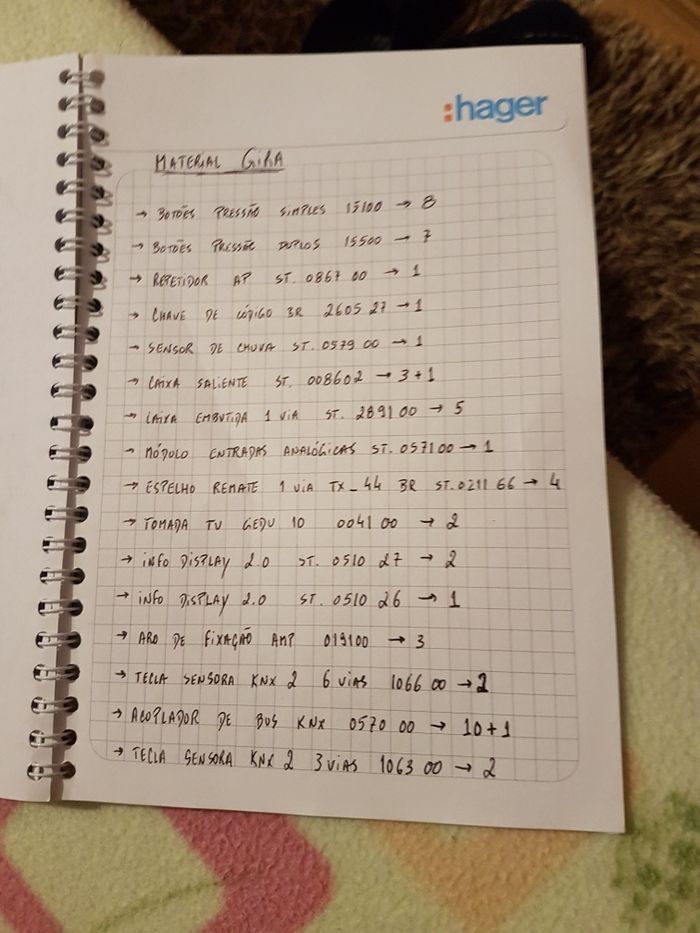 :hager
MATERIAL GIRA
→ BOTÕES PRESSÃO SIMPLES 15100 → 8
→ BOTÕES PRESSÃO DUPLOS 15500 → 7
→ REPETIDOR AP ST. 0867 00 → 1
→ CHAVE DE CÓDIGO BR 2605 27 → 1
→ SENSOR DE CHUVA ST. 0579 00 → 1
→ CAIXA SALIENTE ST. 008602 → 3+1
→ CAIXA EMBUTIDA 1 VIA ST. 289100 → 5
→ MÓDULO ENTRADAS ANALÓGICAS ST. 057100 → 1
→ ESPELHO REMATE 1 VIA TX_44 BR ST. 0211 66 → 4
→ TOMADA TV GEDU 10 0041 00 → 2
→ INFO DISPLAY 2.0 ST. 0510 27 → 2
→ INFO DISPLAY 2.0 ST. 0510 26 → 1
→ ARO DE FIXAÇÃO AMP 019100 → 3
→ TECLA SENSORA KNX 2 6 VIAS 1066 00 → 2
→ ACOPLADOR DE BUS KNX 0570 00 → 10+1
→ TECLA SENSORA KNX 2 3 VIAS 1063 00 → 2